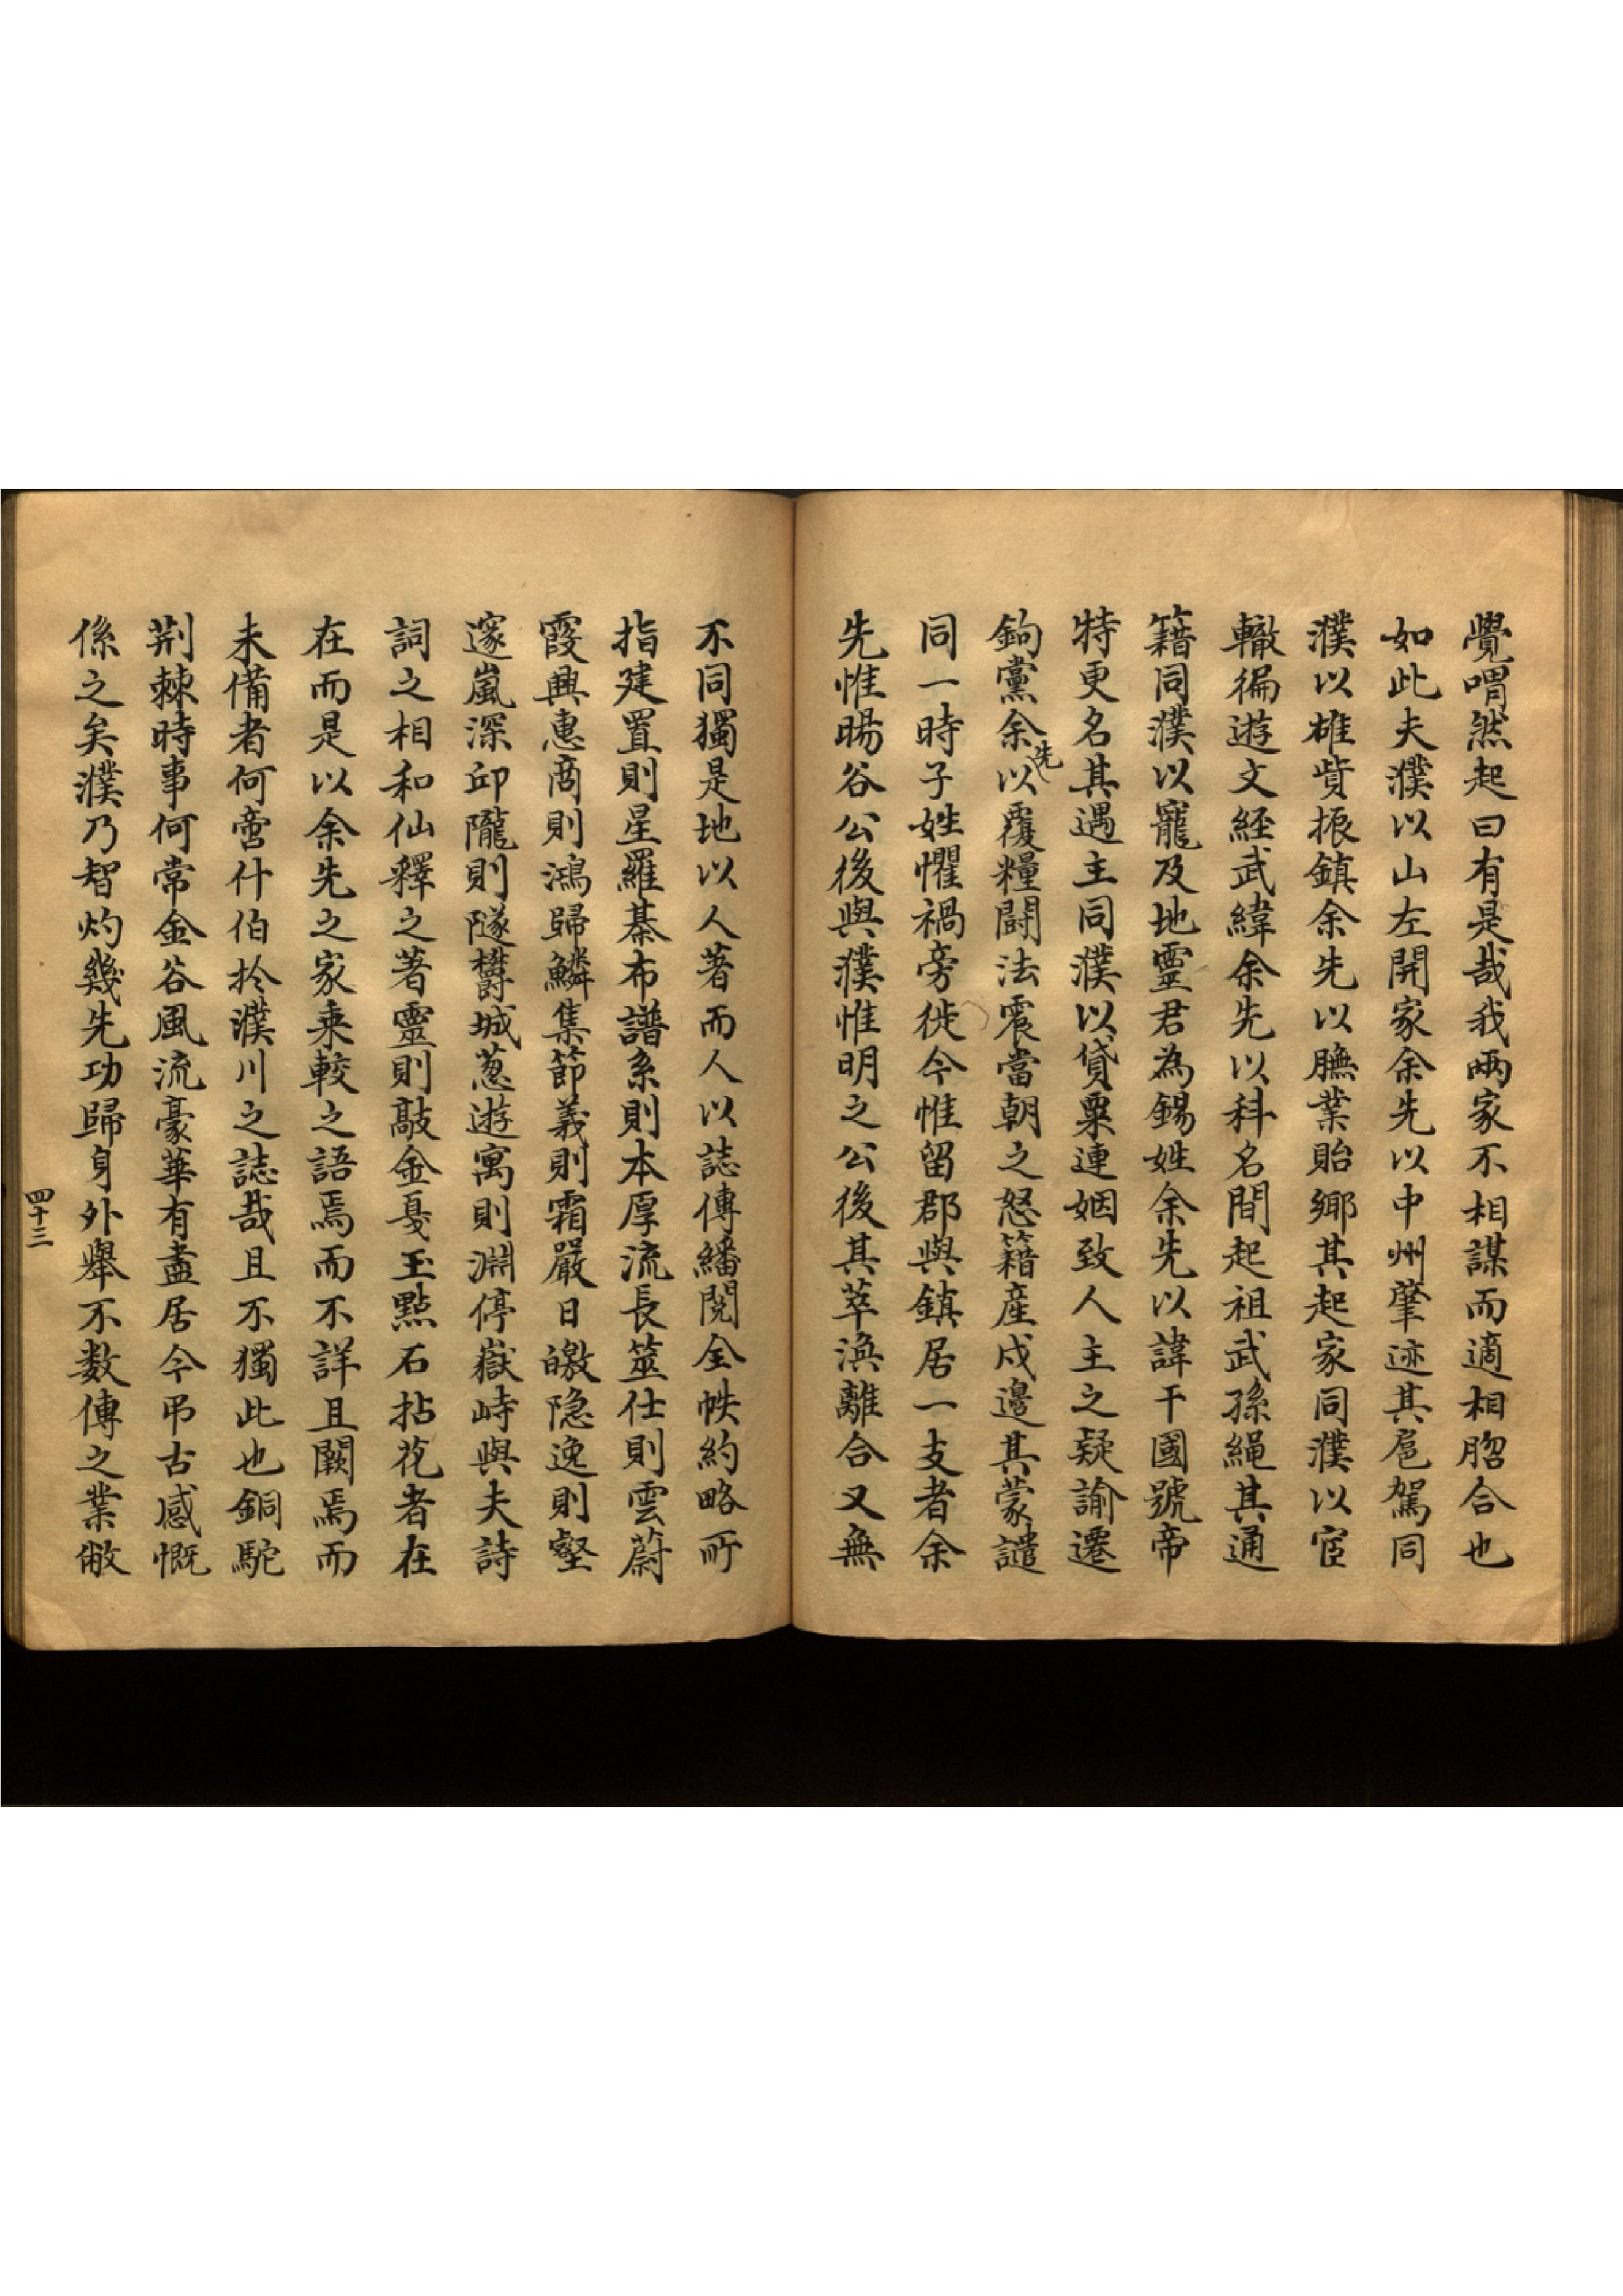 覺喟然起曰有是哉我兩家不相謀而適相脗合也
如此夫濮以山左開家余先以中州肇迹其扈駕同
濮以雄貲振鎮余先以膴業貽鄉其起家同濮以宦
轍徧遊文經武緯余先以科名間起祖武孫繩其通
籍同濮以寵及地靈君為錫姓余先以諱干國號帝
特更名其遇主同濮以貸粟連姻致人主之疑諭遷
鉤黨余先以覆糧鬪法震當朝之怒籍産戍邊其蒙譴
同一時子姓懼禍旁徙今惟留郡與鎮居一支者余
先惟暘谷公後與濮惟明之公後其萃渙離合又無
不同獨是地以人著而人以誌傳繙閱全帙約略所
指建置則星羅棊布譜系則本厚流長筮仕則雲蔚
霞興惠商則鴻歸鱗集節義則霜嚴日皦隐逸則壑
邃嵐深邱隴則隧欝城葱遊寓則淵停嶽峙與夫詩
詞之相和仙釋之著靈則敲金戛玉點石拈花者在
在而是以余先之家乘較之語焉而不詳且闕焉而
未備者何啻什伯扵濮川之誌哉且不獨此也銅駝
荆棘時事何常金谷風流豪華有盡居今吊古感慨
係之矣濮乃智灼幾先功歸身外舉不数傳之業敝
四十三